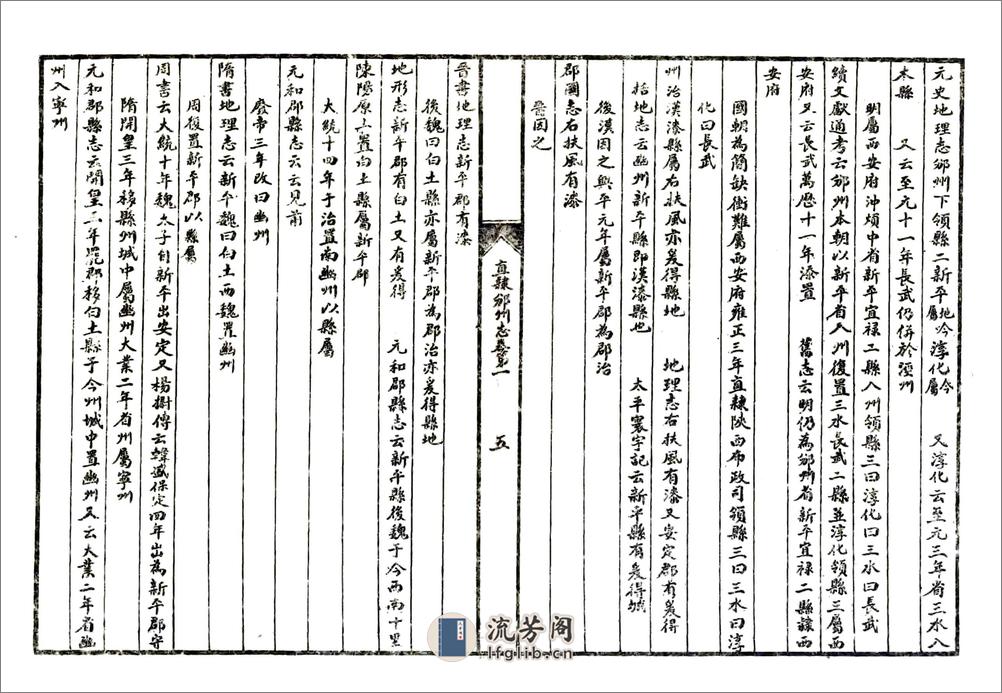 元史地理志邠州下領縣二新平地屬今淳化今屬 又淳化云至元三年省三水入
本縣 又云至元十一年長武仍併於涇州
明屬西安府沖煩中省新平宜祿二縣入州領縣三曰淳化曰三水曰長武
續文獻通考云邠州本朝以新平省入州復置三水長武二縣並淳化領縣三屬西
安府又云長武萬歷十一年添置 舊志云明仍為邠州省新平宜祿二縣隸西
安府
國朝為簡缺衝難屬西安府雍正三年直隸陝西布政司領縣三曰三水曰淳
化曰長武
州治漢漆縣屬右扶風亦爰得縣地 地理志右扶風有漆又安定郡有爰得
括地志云豳州新平縣即漢漆縣也 太平寰宇記云新平縣有爰得城
後漢因之興平元年屬新平郡為郡治
郡國志右扶風有漆
晉因之
直隸邠州志卷第一 五
晉書地理志新平郡有漆
後魏曰白土縣亦屬新平郡為郡治亦爰得縣地
地形志新平郡有白土又有爰得 元和郡縣志云新平縣後魏于今西南十里
陳陽原上置白土縣屬新平郡
大統十四年于治置南豳州以縣屬
元和郡縣志云見前
廢帝三年改曰豳州
隋書地理志云新平魏曰白土西魏置豳州
周復置新平郡以縣屬
周書云大統十年魏太子自新平出安定又楊𢷋傳云韓盛保定四年出為新平郡守
隋開皇三年移縣州城中屬豳州大業二年省州屬寧州
元和郡縣志云開皇三年罷郡移白土縣于今州城中置豳州又云大業二年省豳
州入寧州
流芳阁
lfglib.cn